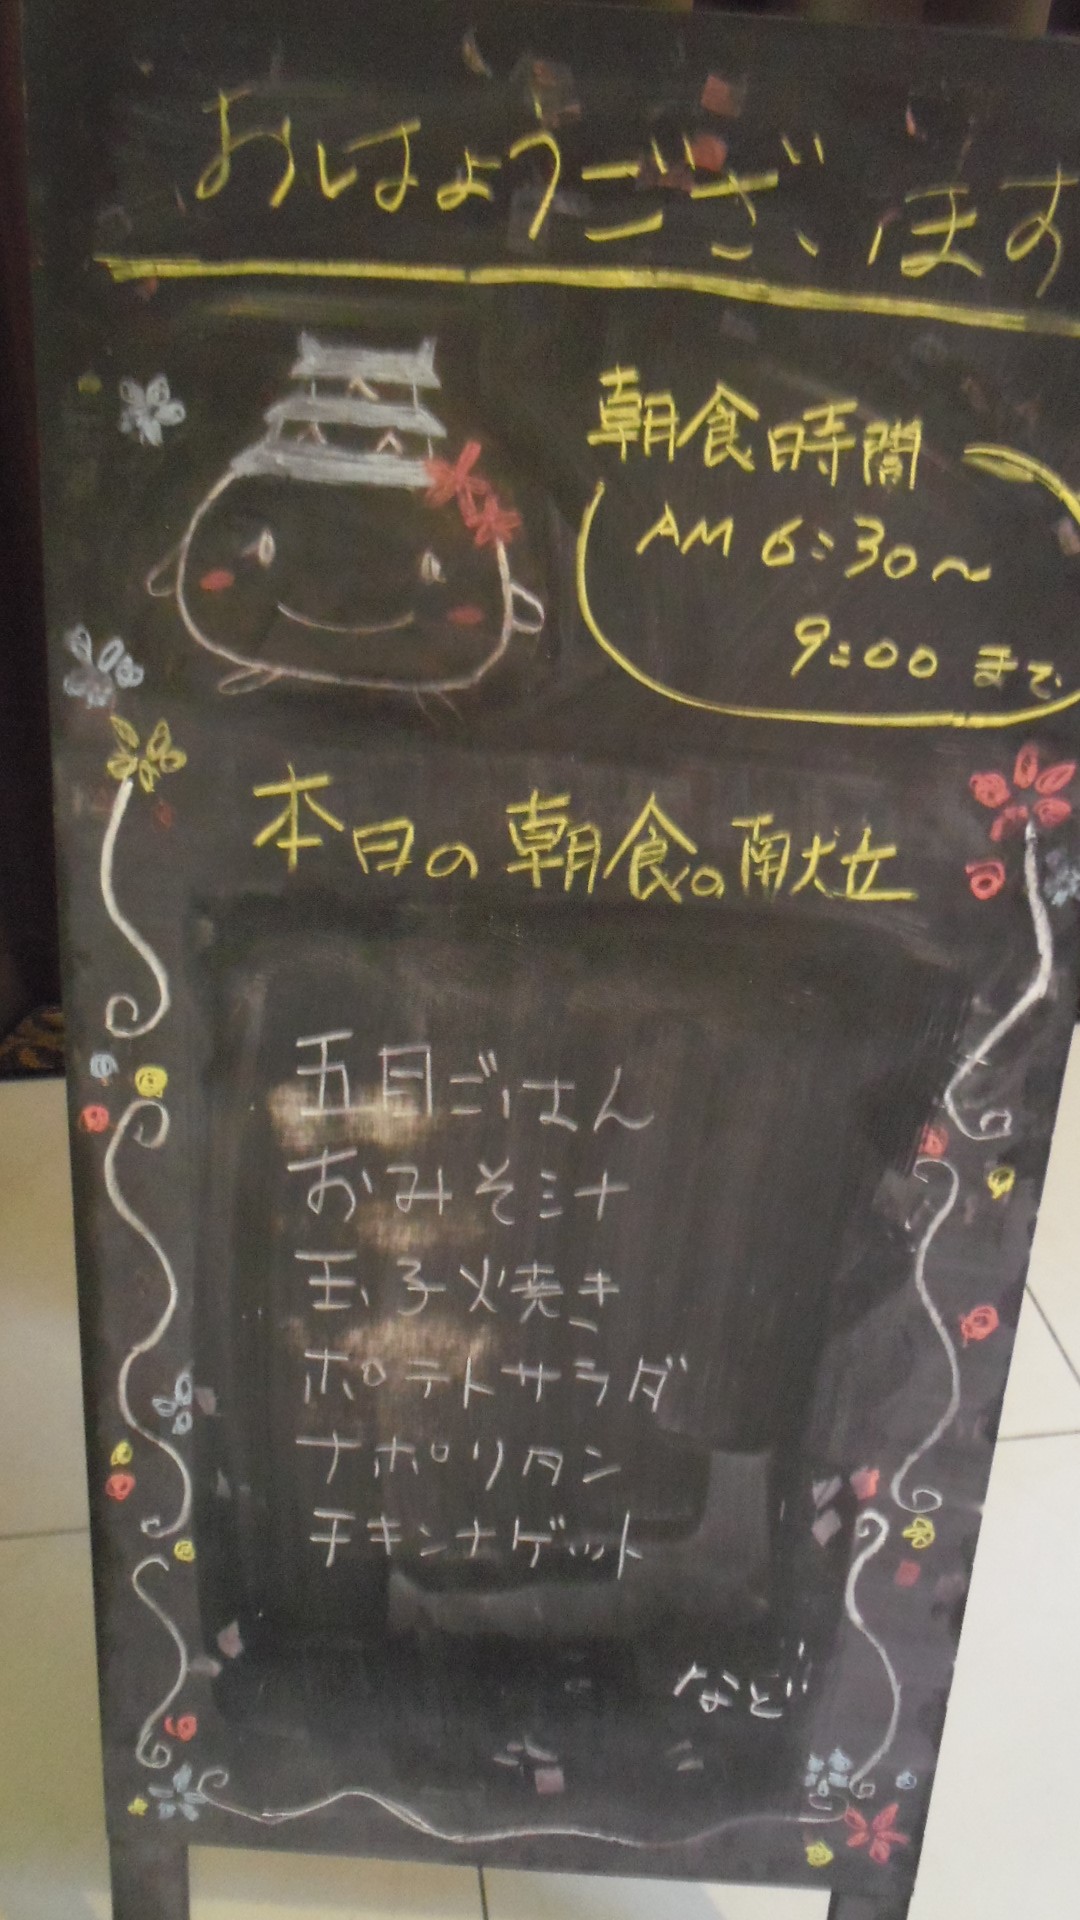 おはようございます
朝食時間
AM 6:30～
9:00 まで
本日の朝食の献立
五目ごはん
おみそ汁
玉子焼き
ポテトサラダ
ナポリタン
チキンナゲット
など